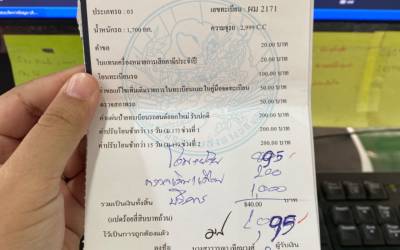 ประเภทรถ : 03 เลขทะเบียน : ผม 2171
น้ำหนักรถ : 1,700 กก. ความจุรถ : 2,999 C.C
คำขอ 20.00 บาท
ใบแทนเครื่องหมายการเสียภาษีประจำปี 20.00 บาท
โอนทะเบียนรถ 100.00 บาท
ค่าแก้ไขเพิ่มเติมรายการในทะเบียนและใบคู่มือจดทะเบียน 50.00 บาท
ตรวจสภาพรถ 50.00 บาท
ค่าแผ่นป้ายทะเบียนรถยนต์ออกใหม่ รับปกติ 200.00 บาท
ค่าปรับโอนช้ากว่า 15 วัน (ม.17) ช่วงที่ 1 200.00 บาท
ค่าปรับโอนช้ากว่า 15 วัน ช่วงที่ 2 200.00 บาท
95
200
1000
บริการ
รวมเป็นเงินทั้งสิ้น 840.00 บาท
(แปดร้อยสี่สิบบาทถ้วน)
95
ไว้เป็นการถูกต้องแล้ว
ลงชื่อ ผู้รับเงิน